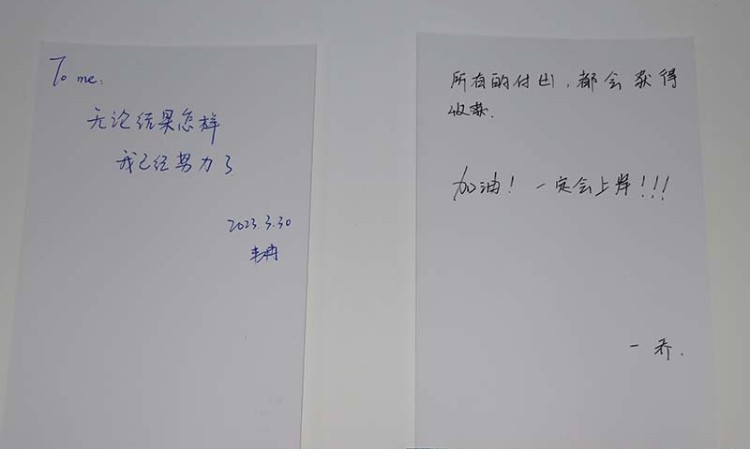 To me:
无论结果怎样
我已经努力了
2023.3.30
所有的付出，都会获得
收获.
加油！一定会上岸!!!
一乔.